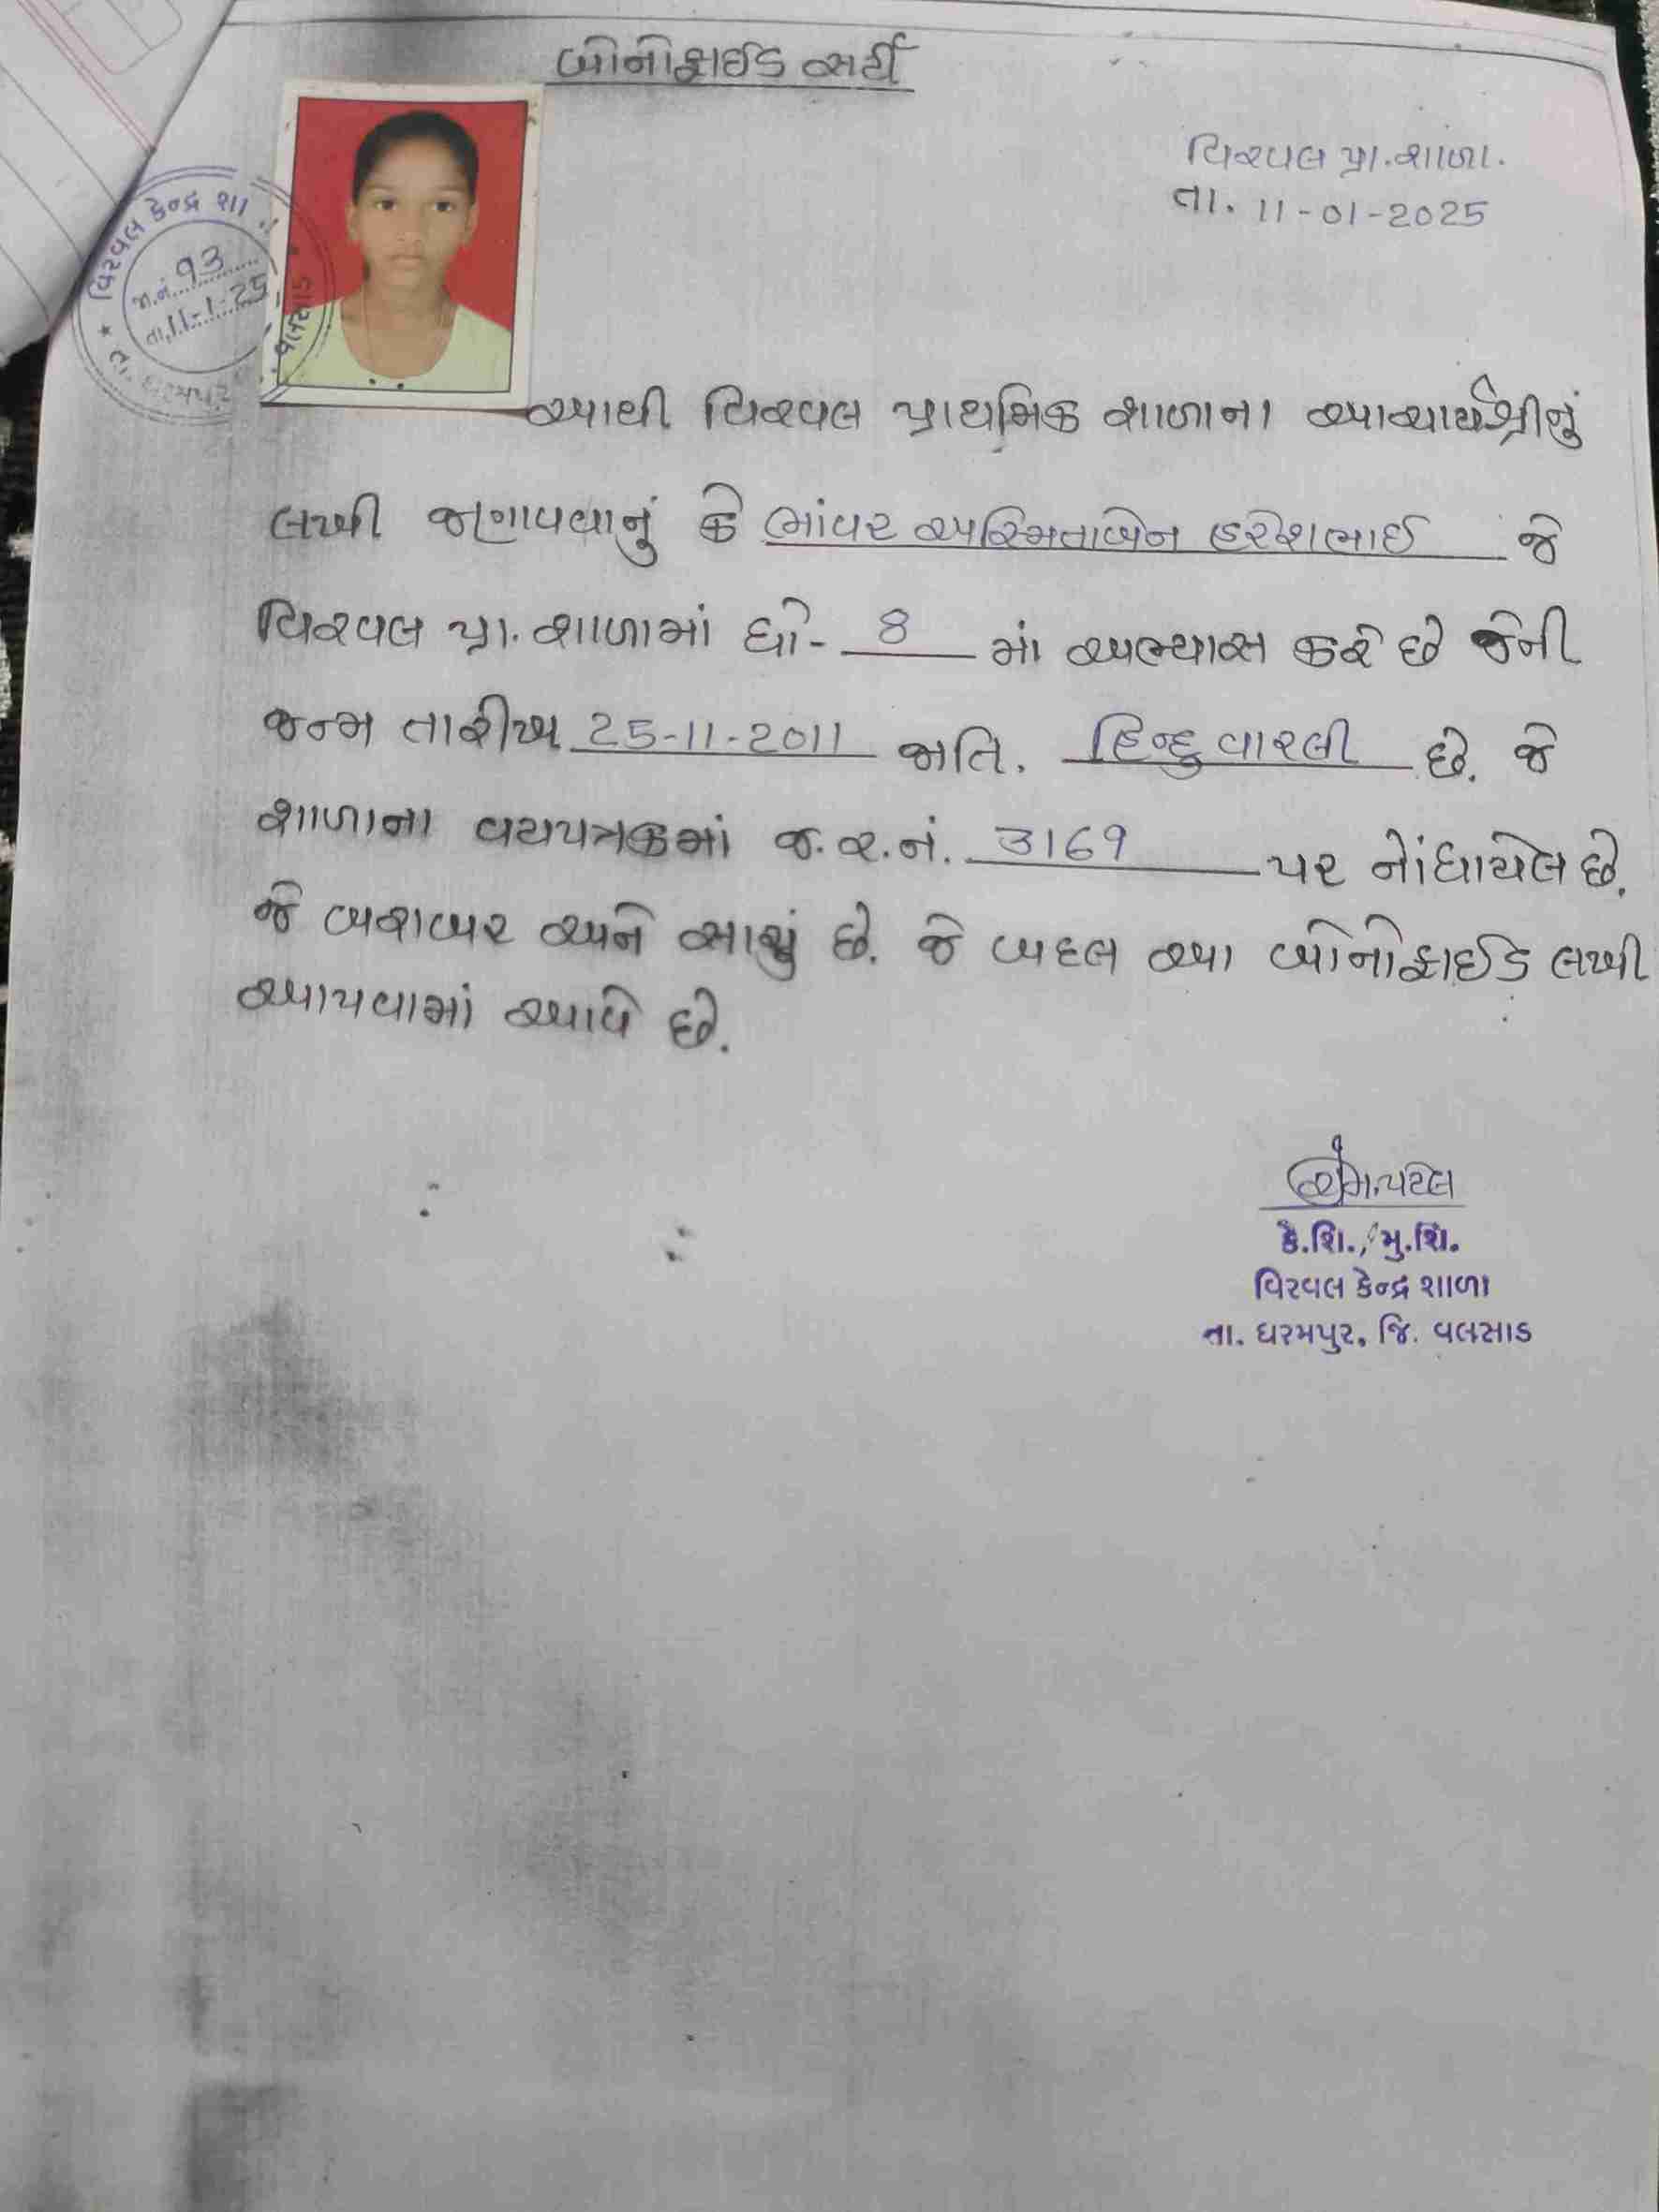 બોનોફાઈડ સર્ટી
વિરવલ પ્રા.શાળા.
તા. 11-01-2025
વિરવલ કેન્દ્ર શા
જા.નં. 93
તા. 11-1-25
તા. ધરમપુર
વલસાડ
આથી વિરવલ પ્રાથમિક શાળાના આચાર્યશ્રીનું
લખી જણાવવાનું કે ભાંવર અસ્મિતાબેન હરેશભાઈ જે
વિરવલ પ્રા. શાળામાં ધો- 8 માં અભ્યાસ કરે છે જેની
જન્મ તારીખ 25-11-2011 જાતિ. હિન્દુ વારલી છે. જે
શાળાના વયપત્રકમાં જ.ર.નં. 3169 પર નોંધાયેલ છે.
જે બરાબર અને સાચું છે. જે બદલ આ બોનોફાઈડ લખી
આપવામાં આવે છે.
પટેલ
કે.શિ./મુ.શિ.
વિરવલ કેન્દ્ર શાળા
તા. ધરમપુર, જિ. વલસાડ